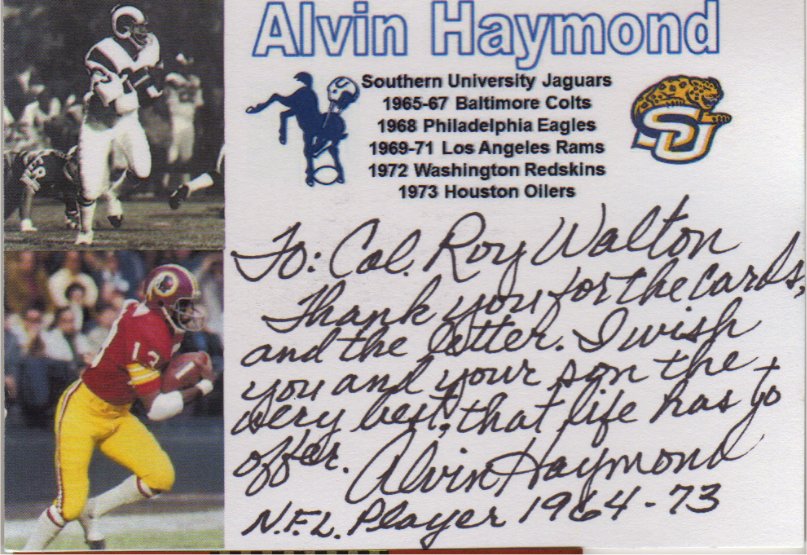 Alvin Haymond
Southern University Jaguars
1965-67 Baltimore Colts
1968 Philadelphia Eagles
1969-71 Los Angeles Rams
1972 Washington Redskins
1973 Houston Oilers
SU
To: Col. Roy Walton
Thank you for the cards,
and the letter. I wish
you and your son the
very best, that life has to
offer. Alvin Haymond
N.F.L. Player 1964-73
13